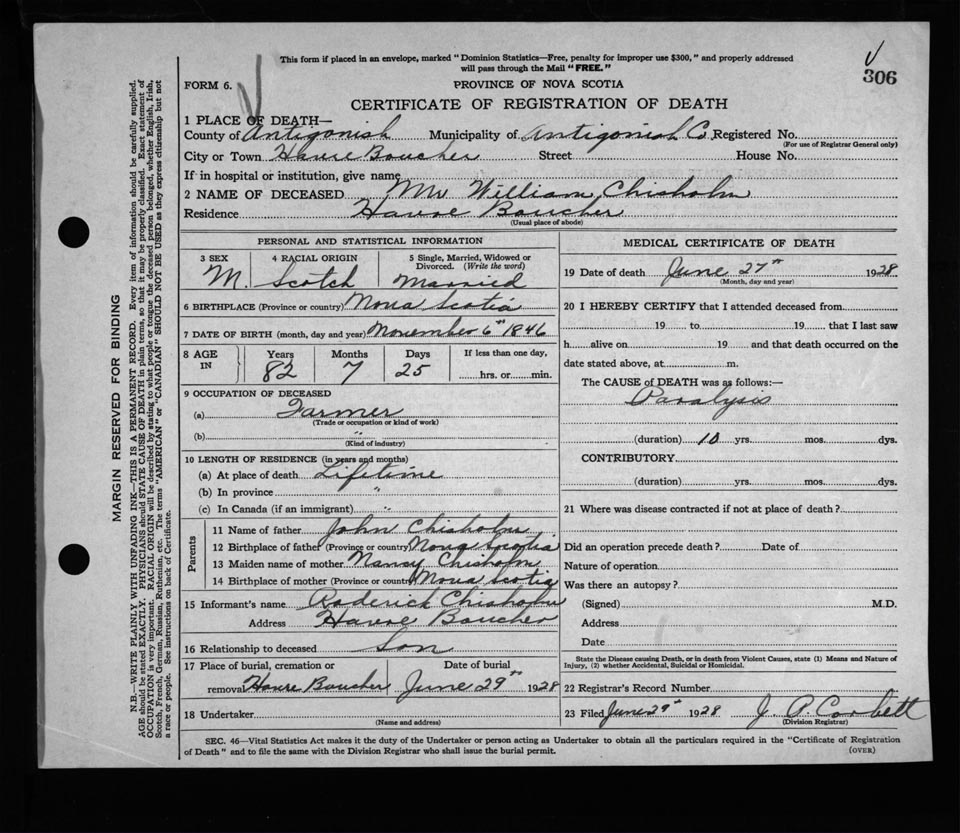 This form if placed in an envelope, marked "Dominion Statistics—Free, penalty for improper use $300," and properly addressed
will pass through the Mail "FREE."
306
FORM 6.
PROVINCE OF NOVA SCOTIA
CERTIFICATE OF REGISTRATION OF DEATH
1 PLACE OF DEATH—
County of Antigonish Municipality of Antigonish Co. Registered No.
(For use of Registrar General only)
City or Town Havre Boucher Street House No.
If in hospital or institution, give name
2 NAME OF DECEASED Mr William Chisholm
Residence Havre Boucher
(Usual place of abode)
PERSONAL AND STATISTICAL INFORMATION
3 SEX 4 RACIAL ORIGIN 5 Single, Married, Widowed or
Divorced. (Write the word)
M. Scotch Married
6 BIRTHPLACE (Province or country) Nova Scotia
7 DATE OF BIRTH (month, day and year) November 6th 1846
8 AGE IN Years Months Days If less than one day,
82 7 25 hrs. or min.
9 OCCUPATION OF DECEASED
(a) Farmer
(Trade or occupation or kind of work)
(b) "
(Kind of industry)
10 LENGTH OF RESIDENCE (in years and months)
(a) At place of death Lifetime
(b) In province "
(c) In Canada (if an immigrant) "
Parents
11 Name of father John Chisholm
12 Birthplace of father (Province or country) Nova Scotia
13 Maiden name of mother Nancy Chisholm
14 Birthplace of mother (Province or country) Nova Scotia
15 Informant's name Roderick Chisholm
Address Havre Boucher
16 Relationship to deceased Son
17 Place of burial, cremation or Date of burial
removal Havre Boucher June 29th 1928
18 Undertaker
(Name and address)
MEDICAL CERTIFICATE OF DEATH
19 Date of death June 27th 1928
(Month, day and year)
20 I HEREBY CERTIFY that I attended deceased from
19 to 19 that I last saw
h alive on 19 and that death occurred on the
date stated above, at m.
The CAUSE of DEATH was as follows:—
Paralysis
(duration) 10 yrs. mos. dys.
CONTRIBUTORY
(duration) yrs. mos. dys.
21 Where was disease contracted if not at place of death?
Did an operation precede death? Date of
Nature of operation
Was there an autopsy?
(Signed) M.D.
Address
Date
State the Disease causing Death, or in death from Violent Causes, state (1) Means and Nature of
Injury, (2) whether Accidental, Suicidal or Homicidal.
22 Registrar's Record Number
23 Filed June 29th 1928 J. P. Corbett
(Division Registrar)
SEC. 46—Vital Statistics Act makes it the duty of the Undertaker or person acting as Undertaker to obtain all the particulars required in the "Certificate of Registration
of Death" and to file the same with the Division Registrar who shall issue the burial permit.
(OVER)
MARGIN RESERVED FOR BINDING
N.B.—WRITE PLAINLY WITH UNFADING INK—THIS IS A PERMANENT RECORD. Every item of information should be carefully supplied.
AGE should be stated EXACTLY. PHYSICIANS should STATE CAUSE OF DEATH in plain terms, so that it may be properly classified. Exact statement of
OCCUPATION is very important. RACIAL ORIGIN will be described by stating to what people or tongue the deceased person belonged, whether English, Irish,
Scotch, French, German, Russian, Ruthenian, etc. The terms "AMERICAN" or "CANADIAN" SHOULD NOT BE USED as they express citizenship but not
a race or people. See instructions on back of Certificate.